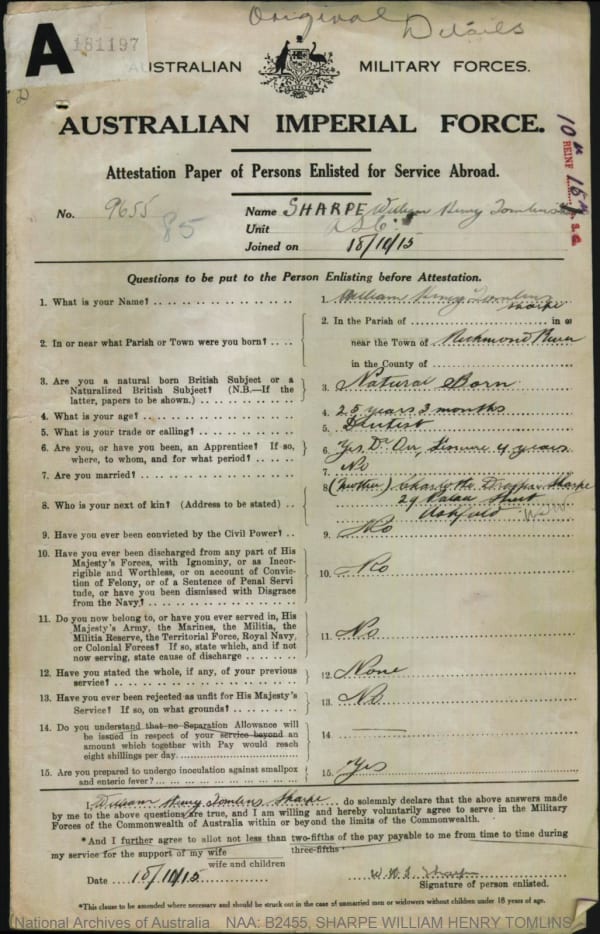 Original Details
A 181197
AUSTRALIAN MILITARY FORCES.
AUSTRALIAN IMPERIAL FORCE.
10th REINF 15th
Attestation Paper of Persons Enlisted for Service Abroad.
No. 9655 85
Name SHARPE William Henry Tomlins
Unit
Joined on 18/10/15
Questions to be put to the Person Enlisting before Attestation.
1. What is your Name? 1. William Henry Tomlins Sharpe
2. In or near what Parish or Town were you born? 2. In the Parish of in or
near the Town of Richmond River
in the County of
3. Are you a natural born British Subject or a
Naturalized British Subject? (N.B.—If the
latter, papers to be shown.) 3. Natural Born
4. What is your age? 4. 25 years 3 months
5. What is your trade or calling? 5. Dentist
6. Are you, or have you been, an Apprentice? If so,
where, to whom, and for what period? 6. Yes Dr Orr, Lismore 4 years
7. Are you married? 7. No
8. Who is your next of kin? (Address to be stated) 8 (Mother) Charlotte Sharpe
29 Street
Ashfield NSW
9. Have you ever been convicted by the Civil Power? 9. No
10. Have you ever been discharged from any part of His
Majesty's Forces, with Ignominy, or as Incor-
rigible and Worthless, or on account of Convic-
tion of Felony, or of a Sentence of Penal Servi
tude, or have you been Dismissed with Disgrace
from the Navy? 10. No
11. Do you now belong to, or have you ever served in, His
Majesty's Army, the Marines, the Militia, the
Militia Reserve, the Territorial Force, Royal Navy,
or Colonial Forces? If so, state which, and if not
now serving, state cause of discharge 11. No
12. Have you stated the whole, if any, of your previous
service? 12. None
13. Have you ever been rejected as unfit for His Majesty's
Service? If so, on what grounds? 13. No
14. Do you understand that no Separation Allowance will
be issued in respect of your service beyond an
amount which together with Pay would reach
eight shillings per day 14. —
15. Are you prepared to undergo inoculation against smallpox
and enteric fever? 15. Yes
I, William Henry Tomlins Sharpe do solemnly declare that the above answers made
by me to the above questions are true, and I am willing and hereby voluntarily agree to serve in the Military
Forces of the Commonwealth of Australia within or beyond the limits of the Commonwealth.
*And I further agree to allot not less than two-fifths of the pay payable to me from time to time during
three-fifths
my service for the support of my wife
wife and children
Date 18/10/15 W.H.T. Sharpe
Signature of person enlisted.
*This clause to be amended where necessary and should be struck out in the case of unmarried men or widowers without children under 18 years of age.
(National Archives of Australia NAA: B2455, SHARPE WILLIAM HENRY TOMLINS